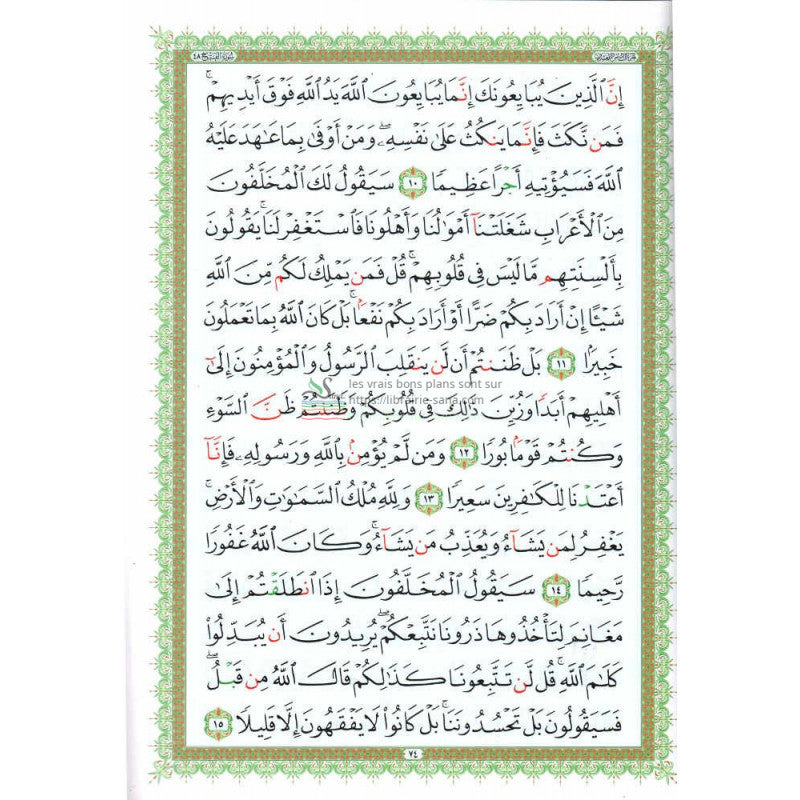 سورة الفتح ٤٨
إِنَّ ٱلَّذِينَ يُبَايِعُونَكَ إِنَّمَا يُبَايِعُونَ ٱللَّهَ يَدُ ٱللَّهِ فَوْقَ أَيْدِيهِمْ ۚ
فَمَن نَّكَثَ فَإِنَّمَا يَنكُثُ عَلَىٰ نَفْسِهِۦ ۖ وَمَنْ أَوْفَىٰ بِمَا عَٰهَدَ عَلَيْهُ
ٱللَّهَ فَسَيُؤْتِيهِ أَجْرًا عَظِيمًا ١٠ سَيَقُولُ لَكَ ٱلْمُخَلَّفُونَ
مِنَ ٱلْأَعْرَابِ شَغَلَتْنَآ أَمْوَٰلُنَا وَأَهْلُونَا فَٱسْتَغْفِرْ لَنَا ۚ يَقُولُونَ
بِأَلْسِنَتِهِم مَّا لَيْسَ فِى قُلُوبِهِمْ ۚ قُلْ فَمَن يَمْلِكُ لَكُم مِّنَ ٱللَّهِ
شَيْـًٔا إِنْ أَرَادَ بِكُمْ ضَرًّا أَوْ أَرَادَ بِكُمْ نَفْعًۢا ۚ بَلْ كَانَ ٱللَّهُ بِمَا تَعْمَلُونَ
خَبِيرًۢا ١١ بَلْ ظَنَنتُمْ أَن لَّن يَنقَلِبَ ٱلرَّسُولُ وَٱلْمُؤْمِنُونَ إِلَىٰٓ
les vrais bons plans sont sur
أَهْلِيهِمْ أَبَدًا وَزُيِّنَ ذَٰلِكَ فِى قُلُوبِكُمْ وَظَنَنتُمْ ظَنَّ ٱلسَّوْءِ
https://librairie-sana.com
وَكُنتُمْ قَوْمًۢا بُورًا ١٢ وَمَن لَّمْ يُؤْمِنۢ بِٱللَّهِ وَرَسُولِهِۦ فَإِنَّآ
أَعْتَدْنَا لِلْكَٰفِرِينَ سَعِيرًا ١٣ وَلِلَّهِ مُلْكُ ٱلسَّمَٰوَٰتِ وَٱلْأَرْضِ ۚ
يَغْفِرُ لِمَن يَشَآءُ وَيُعَذِّبُ مَن يَشَآءُ ۚ وَكَانَ ٱللَّهُ غَفُورًا
رَّحِيمًا ١٤ سَيَقُولُ ٱلْمُخَلَّفُونَ إِذَا ٱنطَلَقْتُمْ إِلَىٰ
مَغَانِمَ لِتَأْخُذُوهَا ذَرُونَا نَتَّبِعْكُمْ ۖ يُرِيدُونَ أَن يُبَدِّلُوا۟
كَلَٰمَ ٱللَّهِ ۚ قُل لَّن تَتَّبِعُونَا كَذَٰلِكُمْ قَالَ ٱللَّهُ مِن قَبْلُ ۖ
فَسَيَقُولُونَ بَلْ تَحْسُدُونَنَا ۚ بَلْ كَانُوا۟ لَا يَفْقَهُونَ إِلَّا قَلِيلًا ١٥
٧٤